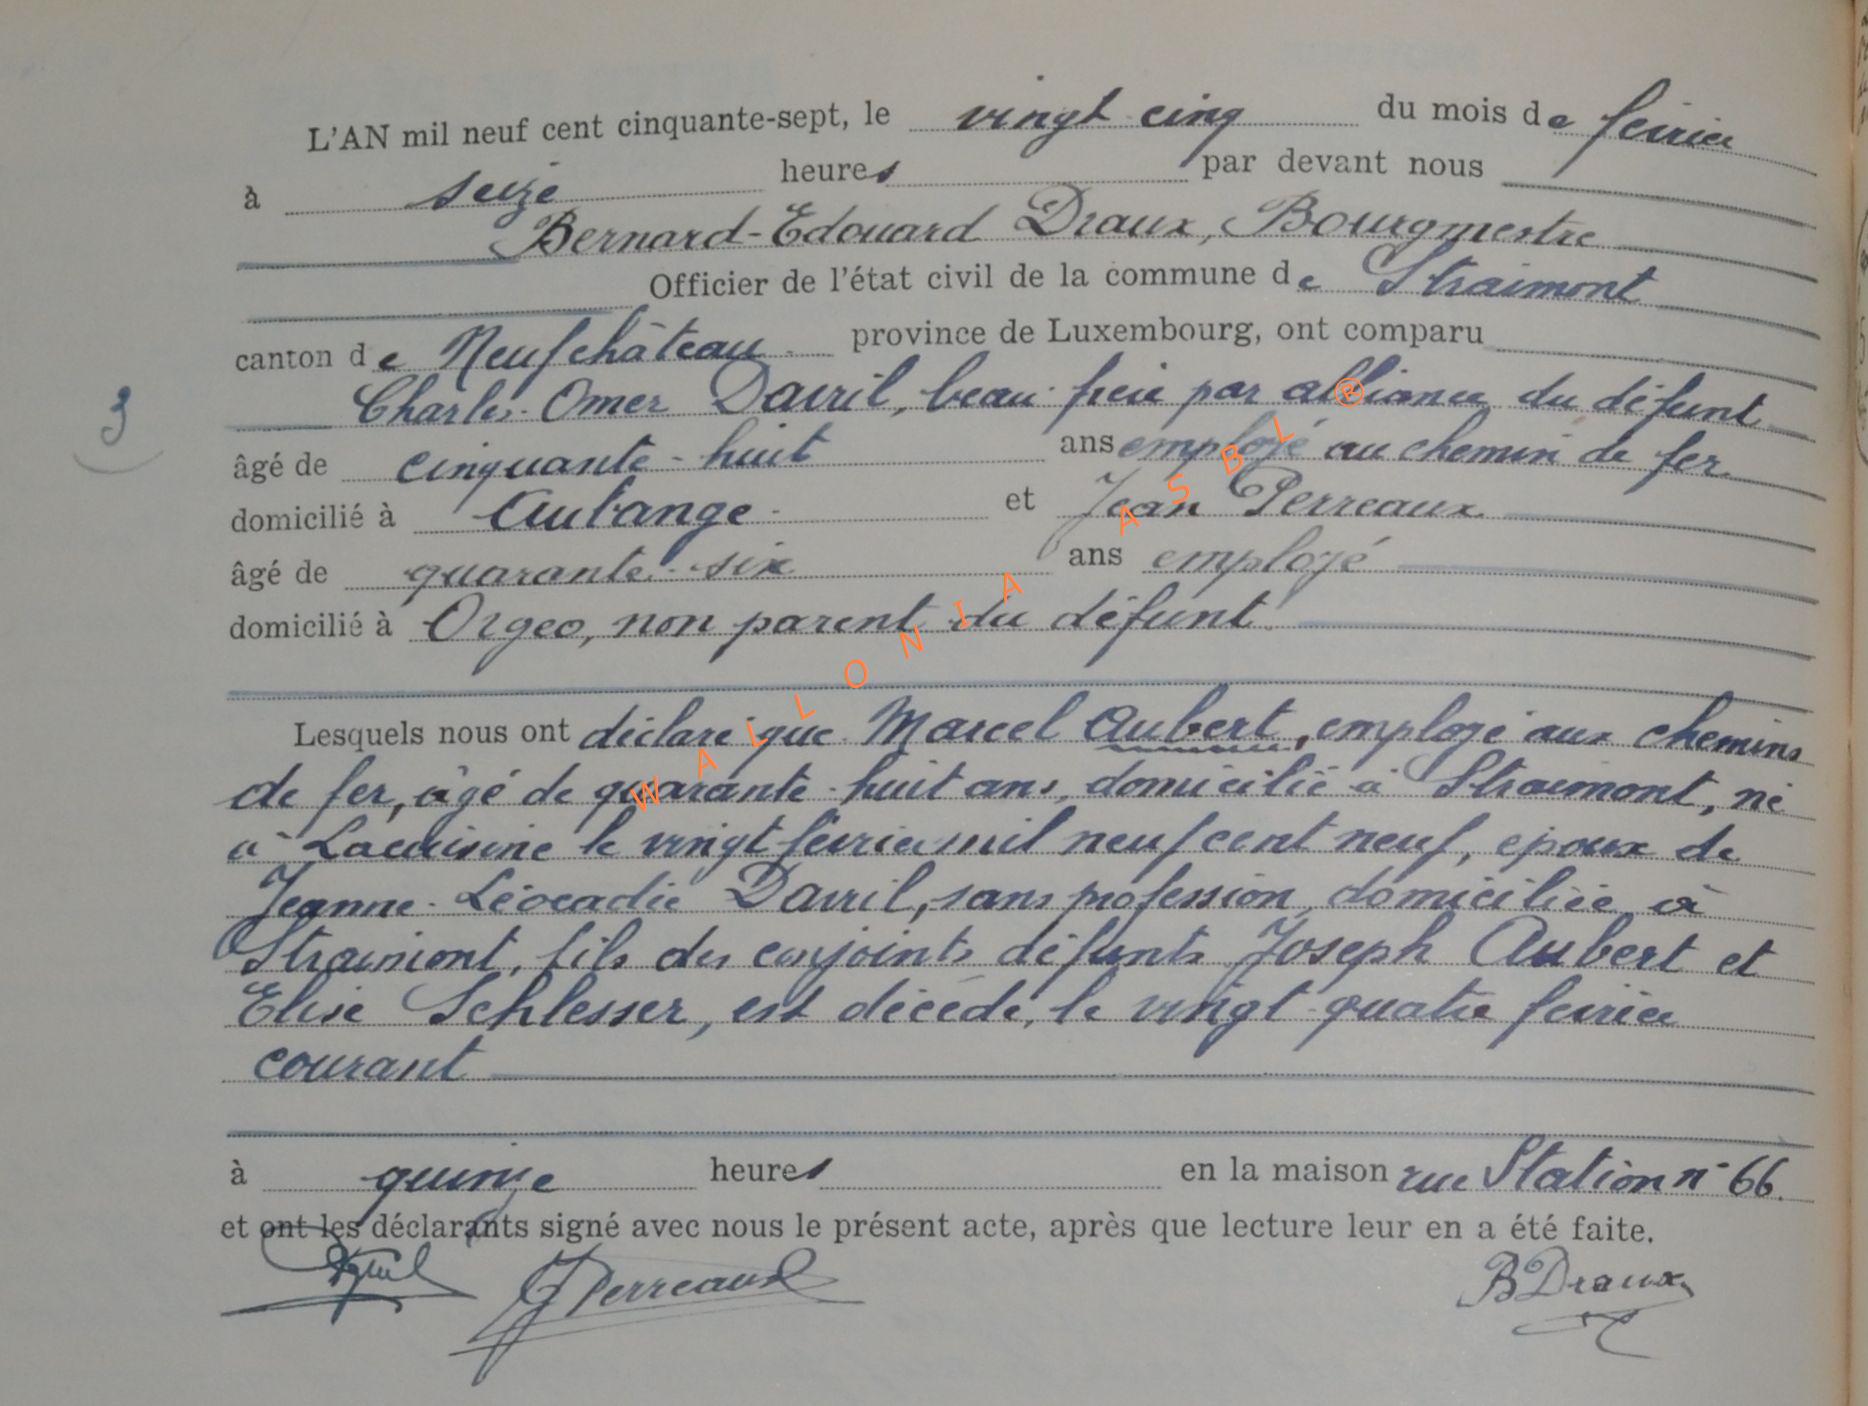 L'AN mil neuf cent cinquante-sept, le vingt cinq du mois de février
à seize heures par devant nous
Bernard-Edouard Draux, Bourgmestre
Officier de l'état civil de la commune de Straimont
canton de Neufchâteau province de Luxembourg, ont comparu
Charles-Omer Davril, beau-frère par alliance du défunt
3
âgé de cinquante-huit ans employé au chemin de fer
domicilié à Aubange et Jean Perreaux
âgé de quarante-six ans employé
domicilié à Orgeo, non parent du défunt
Lesquels nous ont déclaré que Marcel Aubert, employé aux chemins
de fer, âgé de quarante-huit ans, domicilié à Straimont, né
à Lacuisine le vingt février mil neuf cent neuf, époux de
Jeanne-Léocadie Davril, sans profession, domiciliée à
Straimont, fils des conjoints défunts Joseph Aubert et
Elise Schlesser, est décédé, le vingt-quatre février
courant
à quinze heures en la maison rue Station n° 66.
et ont les déclarants signé avec nous le présent acte, après que lecture leur en a été faite.
JPerreaux BDraux
WALLONIA ASBL ®